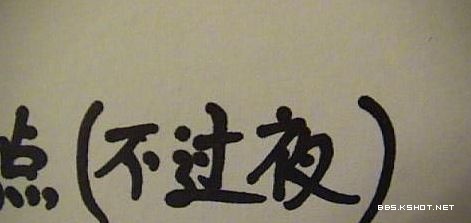 点(不过夜)
BBS.KSHOT.NET